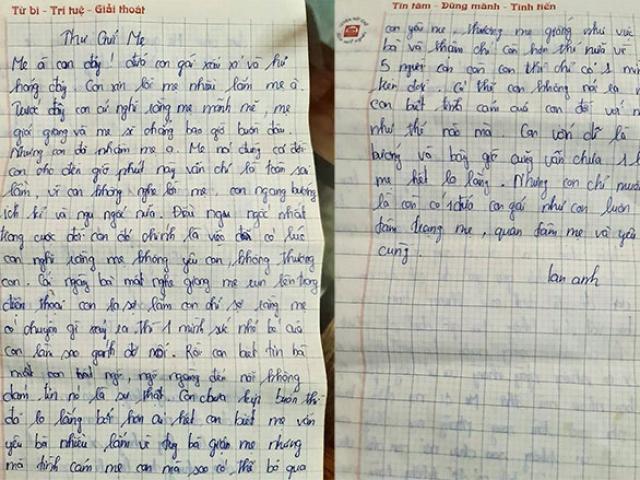 Từ bi - Trí tuệ - Giải thoát
Thư Gửi Mẹ
Mẹ à con đây! đứa con gái xấu xí và hư
hỏng đây. Con xin lỗi mẹ nhiều lắm mẹ ạ.
Trước đây con cứ nghĩ rằng mẹ mạnh mẽ, mẹ
giỏi giang và mẹ sẽ chẳng bao giờ buồn đâu.
Nhưng con đã nhầm mẹ ạ. Mẹ nói đúng cả đời
con cho đến giờ phút này vẫn chỉ là toàn sai
lầm, vì con không nghe lời mẹ. con ngang bướng
ích kỉ và ngu ngốc nữa. Điều ngu ngốc nhất
trong cuộc đời con đó chính là việc đã có lúc
con nghĩ rằng mẹ không yêu con, không thương
con. Cái ngày bà mất nghe giọng mẹ run lên trong
điện thoại con lo sợ lắm con chỉ sợ rằng mẹ
có chuyện gì xảy ra thì 1 mình sức nhỏ bé của
con làm sao gánh đỡ nổi. Rồi con biết tin bà
mất con bất ngờ, ngỡ ngàng đến nỗi không
dám tin nó là sự thật. Con chưa kịp buồn thì
đã lo lắng bởi hơn ai hết con biết mẹ vẫn
yêu bà nhiều lắm và tuy bà giận mẹ nhưng
mà tình cảm mẹ con mà sao có thể bỏ qua
Tín tâm - Dũng mãnh - Tinh tiến
con yêu mẹ, thương mẹ giống như việc
bà và thậm chí con hơn thế nữa vì
5 người con còn con thì chỉ có 1 mình
trên đời. Có thể con không nói ra
con biết tình cảm của con đối với
như thế nào mà. Con vốn dĩ là
bướng và bây giờ cũng vẫn chưa 1
mẹ hết lo lắng. Nhưng con chỉ muốn
là con có 1 đứa con gái như con luôn
đằng mẹ, quan tâm mẹ và yêu
cùng.
lan anh